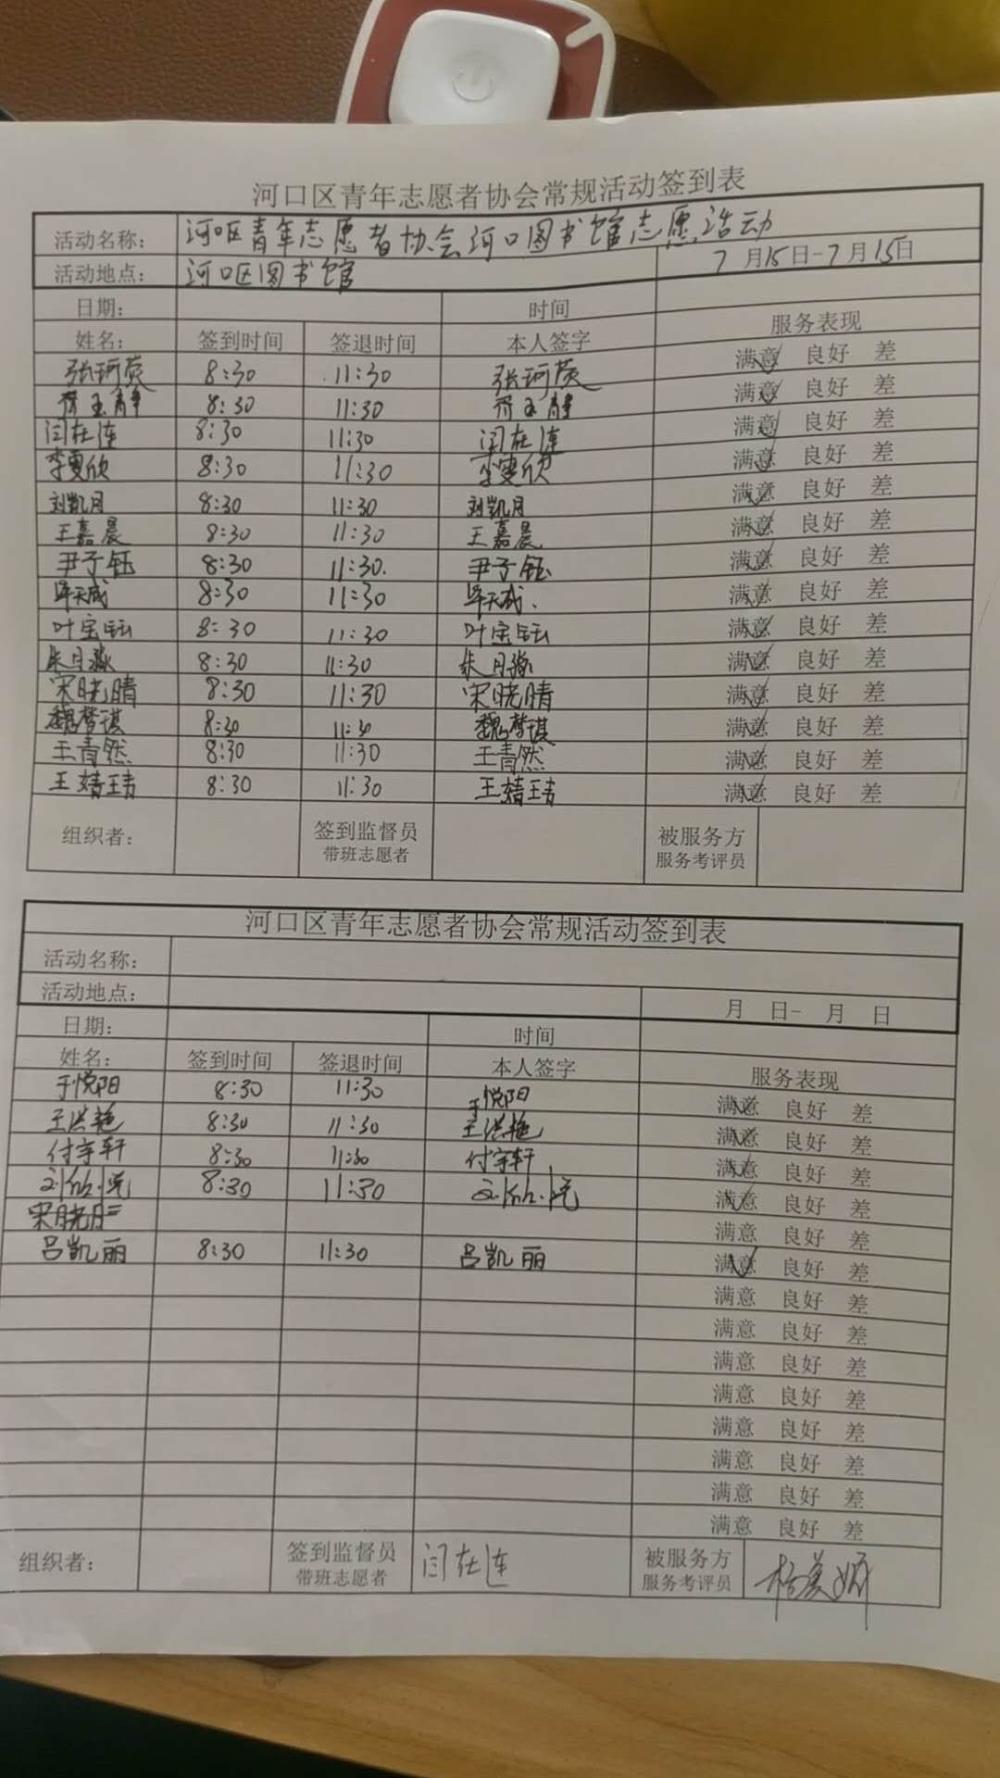 河口区青年志愿者协会常规活动签到表
活动名称: 河口区青年志愿者协会河口图书馆志愿活动
活动地点: 河口区图书馆 7月15日-7月15日
日期: 时间
姓名: 签到时间 签退时间 本人签字 服务表现
张珂荧 8:30 11:30 张珂荧 满意 良好 差
玉静 8:30 11:30 玉静 满意 良好 差
闫在连 8:30 11:30 闫在连 满意 良好 差
李雯欣 8:30 11:30 李雯欣 满意 良好 差
刘凯月 8:30 11:30 刘凯月 满意 良好 差
王嘉晨 8:30 11:30 王嘉晨 满意 良好 差
尹子钰 8:30 11:30 尹子钰 满意 良好 差
天成 8:30 11:30 天成 满意 良好 差
叶宝钰 8:30 11:30 叶宝钰 满意 良好 差
朱月 8:30 11:30 朱月 满意 良好 差
宋晓晴 8:30 11:30 宋晓晴 满意 良好 差
魏梦琪 8:30 11:30 魏梦琪 满意 良好 差
王青然 8:30 11:30 王青然 满意 良好 差
王婧 8:30 11:30 王婧 满意 良好 差
组织者: 签到监督员 被服务方
带班志愿者 服务考评员
河口区青年志愿者协会常规活动签到表
活动名称:
活动地点: 月 日- 月 日
日期: 时间
姓名: 签到时间 签退时间 本人签字 服务表现
于悦阳 8:30 11:30 于悦阳 满意 良好 差
王洪艳 8:30 11:30 王洪艳 满意 良好 差
付宇轩 8:30 11:30 付宇轩 满意 良好 差
刘 8:30 11:30 刘 满意 良好 差
宋晓 满意 良好 差
吕凯丽 8:30 11:30 吕凯丽 满意 良好 差
满意 良好 差
满意 良好 差
满意 良好 差
满意 良好 差
满意 良好 差
满意 良好 差
满意 良好 差
满意 良好 差
组织者: 签到监督员 闫在连 被服务方
带班志愿者 服务考评员